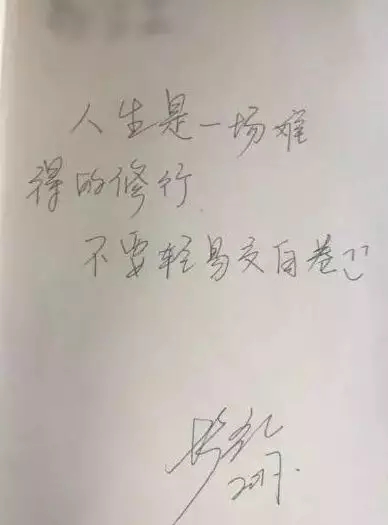 人生是一场难
得的修行
不要轻易交白卷
2017.